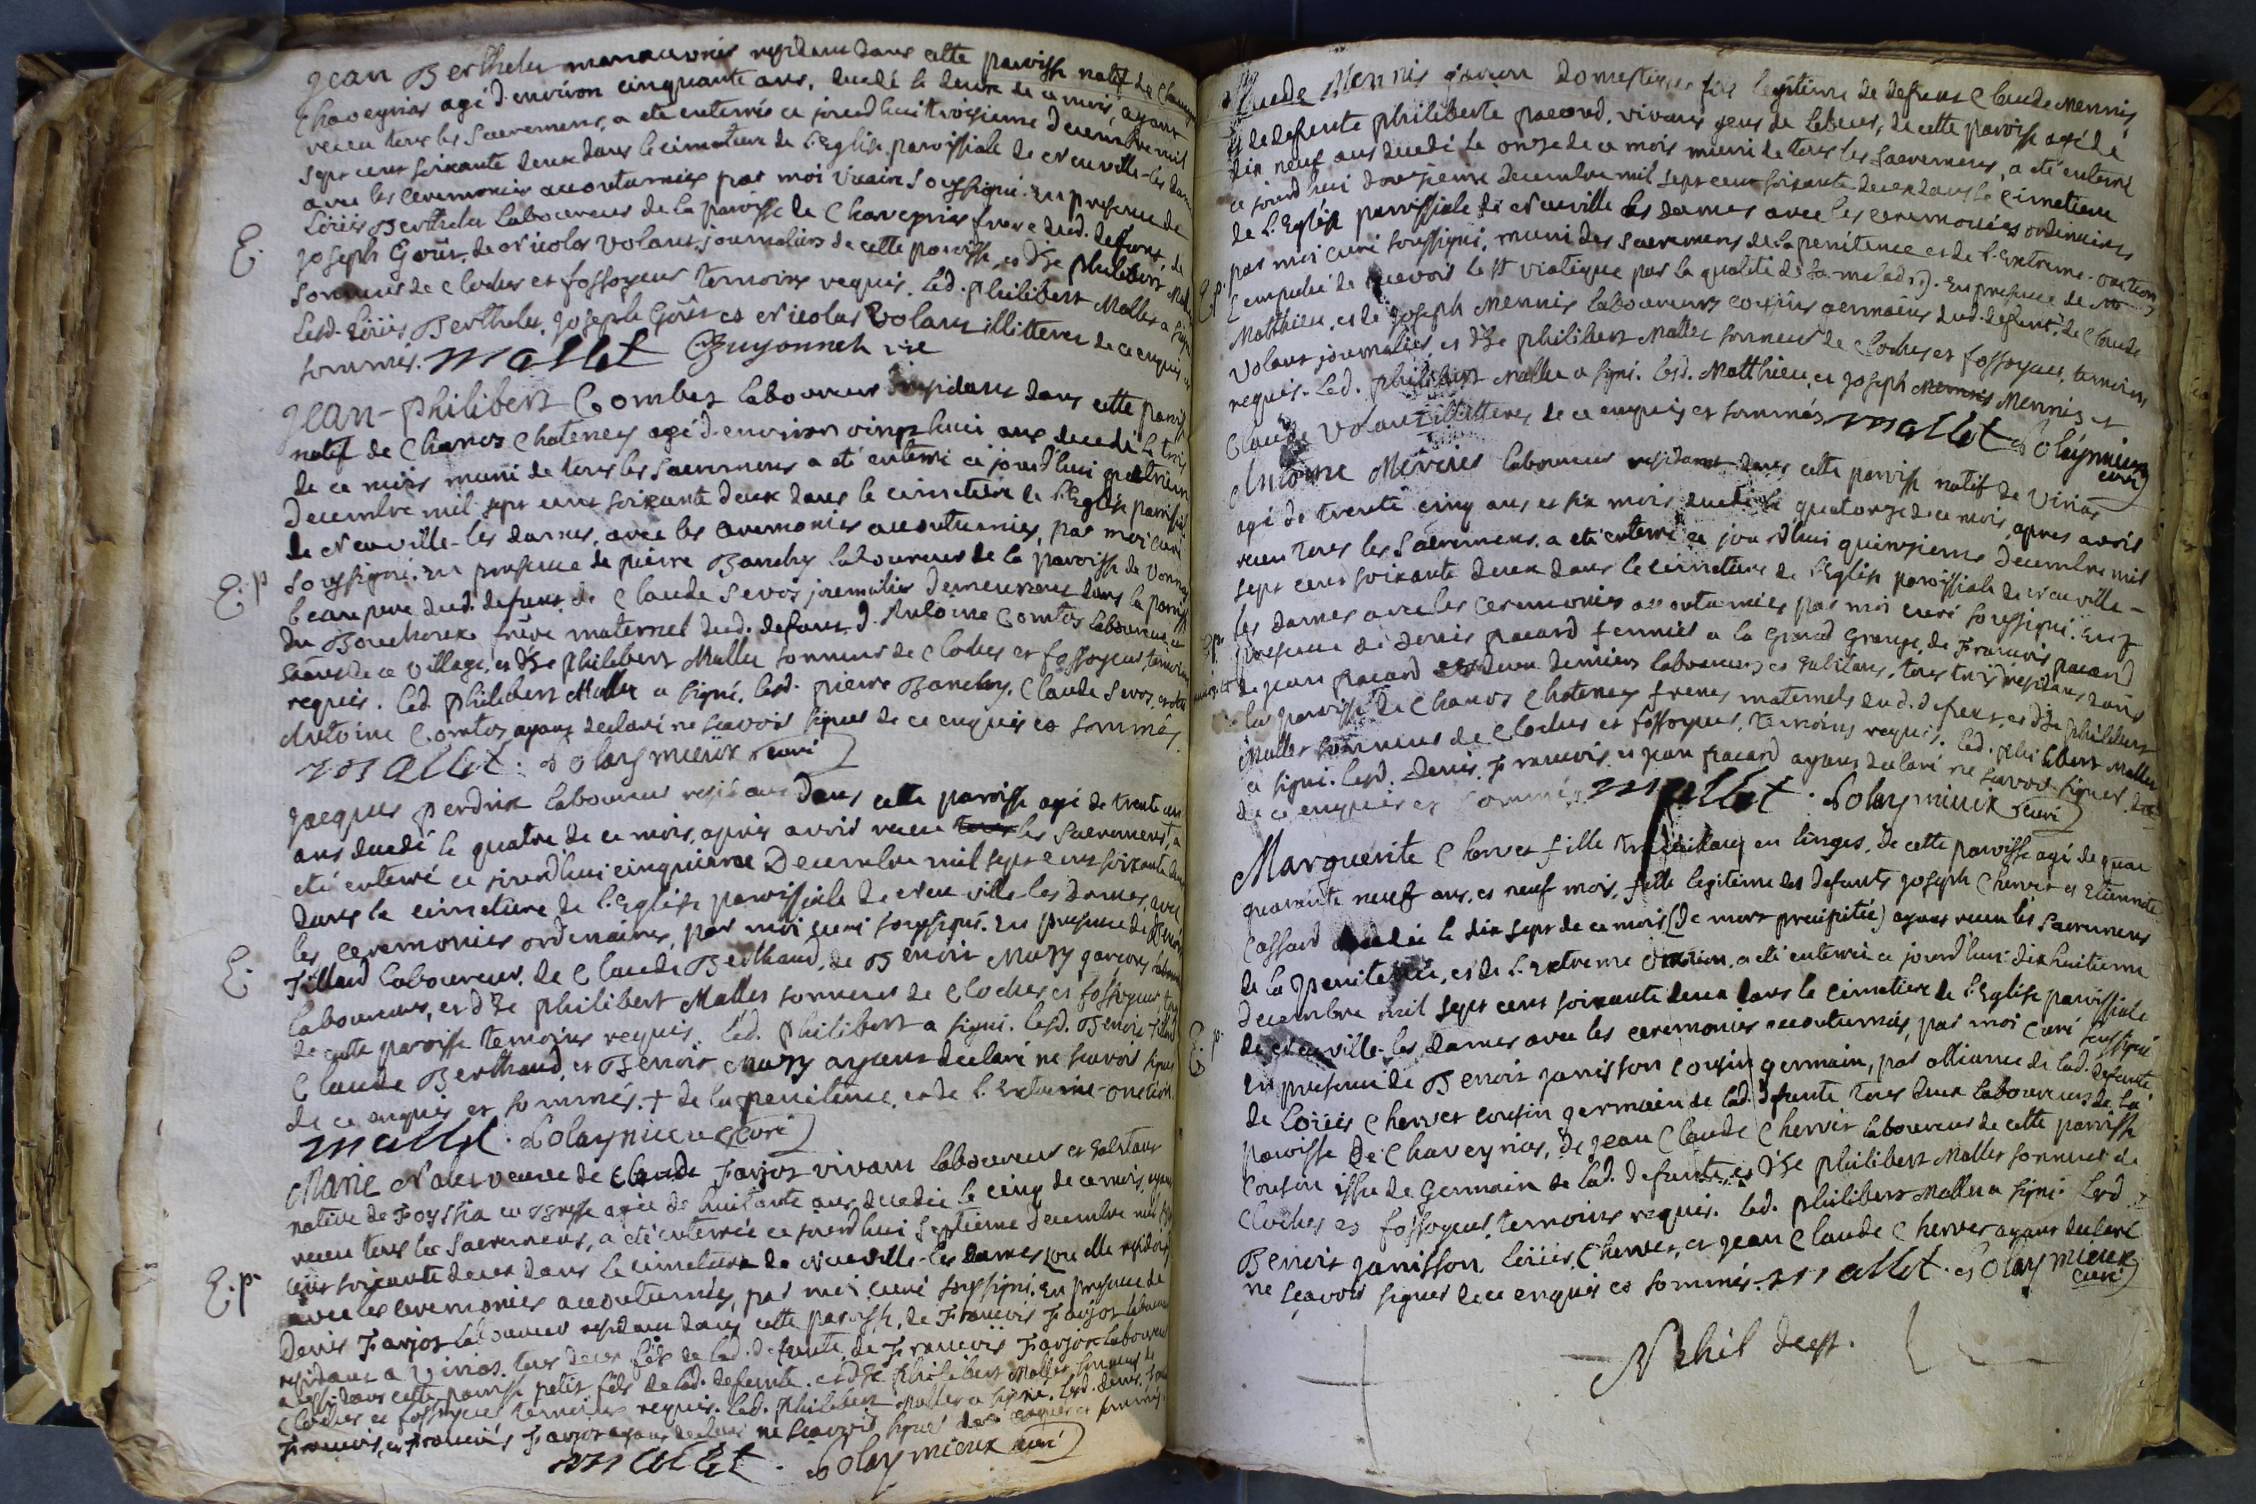 Jean Berthelu manœuvrier residant dans cette paroisse natif de
Chaveyrias agé d'environ cinquante ans, decedé le deux de ce mois, ayant
receu tous les Sacremens, a eté enterré ce jourd'hui troisieme Decembre mil
sept cent soixante deux dans le cimetiere de l'Eglise paroissiale de Neuville-les dames
avec les ceremonies accoutumées par moi vicaire soussigné. En presence de
Loüis Berthelu Laboureur de la paroisse de Chaveyrias frere dud. defunt, de
E.
Joseph Goüs, de Nicolas Volant journaliers de cette paroisse, et d'he philibert Mallet
sonneur de cloches et fossoyeur temoins requis. Led. philibert Mallet a signé
lesd. Loüis Berthelu, Joseph Goüs et Nicolas Volant illitteres de ce enquis et
sommés. Mallet Guyonnet vic
Jean-Philibert Combet laboureur residant dans cette paroisse
natif de Chanos Chatenay agé d'environ vingt huit ans decedé le trois
de ce mois muni de tous les Sacremens a eté enterré ce jourd'hui quatrieme
Decembre mil sept cent soixante deux dans le cimetiere de l'Eglise paroissiale
de Neuville-les dames, avec les ceremonies accoutumées, par moi curé
E. p
soussigné. En presence de pierre Banchy laboureur de la paroisse de Vonnas
beau pere dud. defunt, de Claude Sevos journalier demeurant dans la paroisse
du Bouchoux frere maternel dud. defunt, d'Antoine Comtos laboureur
de ce village, et d'he philibert Mallet sonneur de cloches et fossoyeur temoins
requis. Led. philibert Mallet a signé. lesd. pierre Banchy, Claude Sevos, et
Antoine Comtos ayant declaré ne sçavoir signer de ce enquis et sommés
Mallet. Dolaymieux curé
Jacques perdrix laboureur residant Dans cette paroisse agé de trente cinq
ans decedé le quatre de ce mois, après avoir receu tous les Sacremens †, a
eté enterré ce jourd'hui cinquieme Decembre mil sept cent soixante deux
dans le cimetiere de l'Eglise paroissiale de Neuville les dames, avec
les ceremonies ordinaires, par moi curé soussigné. En presence de Benoit
E.
Tilland laboureur, de Claude Berthaud, de Benoit Mury garçons
laboureurs, et d'he philibert Mallet sonneur de cloches et fossoyeur tous
de cette paroisse temoins requis. Led. philibert a signé. lesd. Benoit Tilland
Claude Berthaud, et Benoit Mury ayant declaré ne sçavoir signer
de ce enquis et sommés. † de la penitence, et de l'Extreme-onction.
Mallet. Dolaymieux curé
Marie Nalet veuve de Claude Farjot vivant laboureur et habitant
native de Foyssia en Bresse agée de huitante ans, decedée le cinq de ce mois, ayant
receu tous les Sacremens, a eté enterrée ce jourd'hui septieme Decembre mil sept
cent soixante deux dans le cimetiere de Neuville-les dames, ou elle residoit
E. p.
avec les ceremonies accoutumées, par moi curé soussigné. En presence de
Denis Farjot laboureur residant dans cette paroisse, de Francois Farjot laboureur
residant a Viriat, tous deux fils de lad. defunte, de Francois Farjot laboureur
aussi dans cette paroisse petit fils de lad. defunte. et d'he philibert Mallet sonneur de
cloches et fossoyeur temoins requis. Led. philibert Mallet a signé. lesd. denis
Francois, et Francois Farjot ayant declaré ne sçavoir signer de ce enquis et sommés.
Mallet. Dolaymieux curé
Claude Mennis garcon domestique fils legitime de defunt Claude Mennis,
et de defunte philiberte pacoud, vivans gens de labeur, de cette paroisse agé de
dix neuf ans decedé le onze de ce mois muni de tous les Sacremens, a eté enterré
ce jourd'hui douzieme decembre mil sept cent soixante deux dans le cimetiere
de l'Eglise paroissiale de Neuville les dames avec les ceremonies ordinaires
par moi curé soussigné, muni des sacremens de la penitence et de l'Extreme-onction
E. p.
(empeché de recevoir le St viatique par la qualité de sa maladie). En presence de
Matthieu, et de Joseph Mennis laboureurs cousins germains dud. defunt, de Claude
Volant journalier, et d'he philibert Mallet sonneur de cloches et fossoyeur, temoins
requis. Led. philibert Mallet a signé. lesd. Matthieu, et Joseph Mennis et
Claude Volant illitteres de ce enquis et sommés Mallet Dolaymieux
curé
Antoine Mercier laboureur residant dans cette paroisse natif de Viriat
agé de trente cinq ans et six mois decedé le quatorze de ce mois, apres avoir
receu tous les Sacremens, a eté enterré ce jourd'hui quinzieme Decembre mil
sept cent soixante deux dans le cimetiere de l'Eglise paroissiale de Neuville-
les dames avec les ceremonies accoutumées par moi curé soussigné. En
presence de denis pacard fermier a la Grand Grange, de Francois pacard
de jean pacard deux derniers laboureurs et habitans, tous trois residans dans
la paroisse de Chanos Chatenay freres maternels dud. defunt, et d'he philibert
Mallet sonneur de cloches et fossoyeur, temoins requis. Led. philibert Mallet
a signé. lesd. denis, Francois, et jean pacard ayant declaré ne sçavoir signer
de ce enquis et sommés Mallet. Dolaymieux curé
Marguerite Chervet fille travaillant en linges, de cette paroisse agé de
quarante neuf ans, et neuf mois, fille legitime des defunts Joseph Chervet et Etiennette
Cassard decedée le dix sept de ce mois (de mort precipitée) ayant receu les Sacremens
de la penitence, et de l'Extreme onction, a eté enterrée ce jourd'hui dix huitieme
decembre mil sept cent soixante deux dans le cimetiere de l'Eglise paroissiale
E. p.
de Neuville-les dames avec les ceremonies accoutumées, par moi curé soussigné
en presence de Benoit janisson cousin germain, par alliance de lad. defunte,
de Loüis Chervet cousin germain de lad. defunte tous deux laboureurs de la
paroisse de Chaveyrias, de Jean Claude Chervet laboureur de cette paroisse
cousin issu de germain de lad. defunte, et d'he philibert Mallet sonneur de
cloches et fossoyeur, temoins requis. Led. philibert Mallet a signé. Lesd
Benoit janisson Loüis Chervet, et Jean Claude Chervet ayant declaré
ne sçavoir signer de ce enquis et sommés. Mallet. Dolaymieux
curé
Nihil deest.